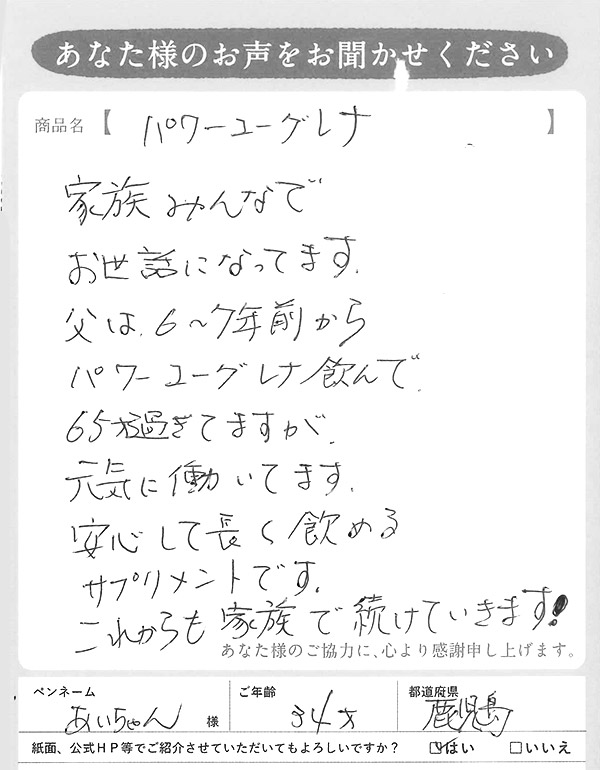 あなた様のお声をお聞かせください
商品名【 パワーユーグレナ 】
家族みんなで
お世話になってます。
父は、6〜7年前から
パワーユーグレナ飲んで、
65才過ぎてますが、
元気に働いてます。
安心して長く飲める
サプリメントです。
これからも家族で続けていきます!
あなた様のご協力に、心より感謝申し上げます。
ペンネーム ご年齢 都道府県
あいちゃん 様 34才 鹿児島
紙面、公式HP等でご紹介させていただいてもよろしいですか? ☑はい □いいえ